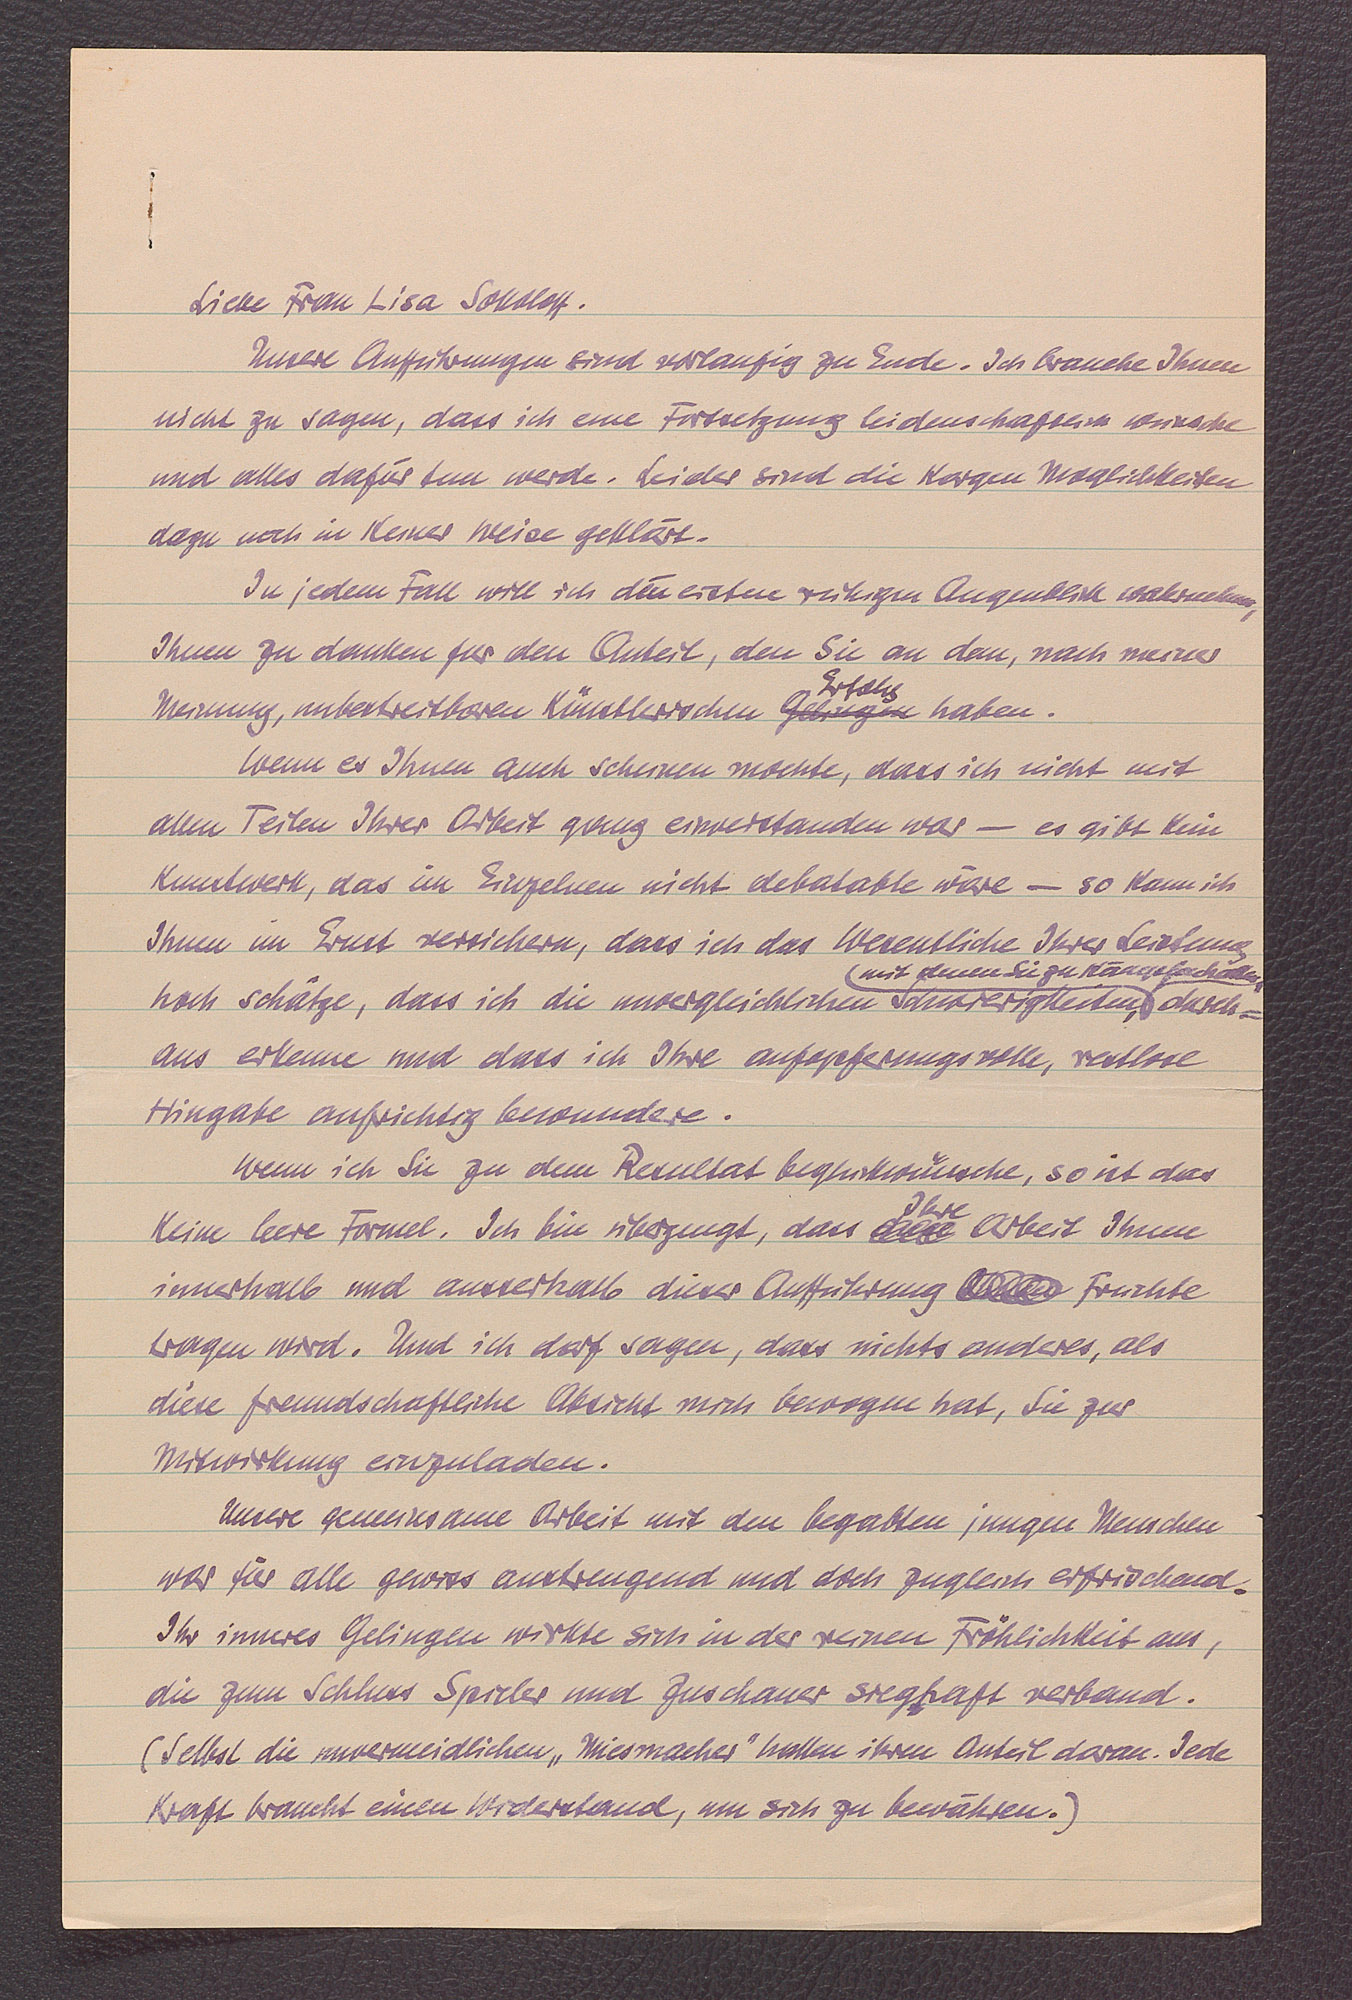 Liebe Frau Lisa Sokoloff.
Unsere Aufführungen sind vorlaufig zu Ende. Ich brauche Ihnen
nicht zu sagen, dass ich eine Fortsetzung leidenschaftlich wünsche
und alles dafür tun werde. Leider sind die kargen Moglichkeiten
dazu noch in keiner Weise geklärt.
In jedem Fall will ich den ersten ruhigen Augenblick wahrnehmen,
Ihnen zu danken fur den Anteil, den Sie an dem, nach meiner
Erfolg
Meinung, unbestreitbaren künstlerischen Gelingen haben.
Wenn es Ihnen auch scheinen mochte, dass ich nicht mit
allen Teilen Ihrer Arbeit ganz einverstanden war — es gibt kein
Kunstwerk, das im Einzelnen nicht debatable wäre — so kann ich
Ihnen im Ernst versichern, dass ich das Wesentliche Ihrer Leistung
(mit denen Sie zu kämpfen hatten,
hoch schätze, dass ich die unvergleichlichen Schwierigkeiten,) durch=
aus erkenne und dass ich Ihre aufopferungsvolle, restlose
Hingabe aufrichtig bewundere.
Wenn ich Sie zu dem Resultat beglukwünsche, so ist das
Ihre
keine leere Formel. Ich bin überzeugt, dass diese Arbeit Ihnen
innerhalb und ausserhalb dieser Aufführung Fruchte
tragen wird. Und ich darf sagen, dass nichts anderes, als
diese freundschaftliche Absicht mich bewogen hat, Sie zur
Mitwirkung einzuladen.
Unsere gemeinsame Arbeit mit den begabten jungen Menschen
war für alle gewiss anstrengend und doch zugleich erfrischend.
Ihr inneres Gelingen wirkte sich in der reinen Fröhlichkeit aus,
die zum Schluss Spieler und Zuschauer sieghaft verband.
(Selbst die unvermeidlichen „Miesmacher" hatten ihren Anteil daran. Jede
Kraft braucht einen Widerstand, um sich zu bewähren.)